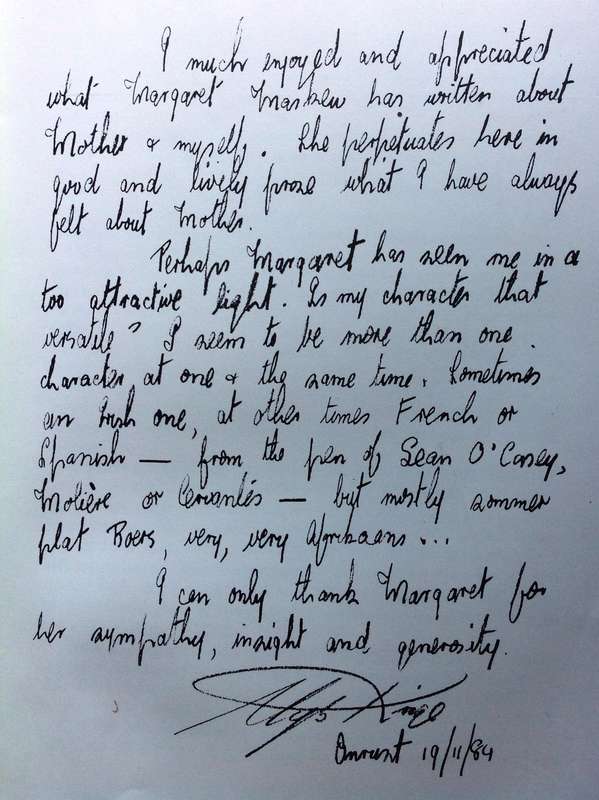 I much enjoyed and appreciated
what Margaret has written about
Mother & myself. She perpetuates here in
good and lively prose what I have always
felt about Mother.
Perhaps Margaret has seen me in a
too attractive light. Is my character that
versatile? I seem to be more than one
character at one & the same time. Sometimes
an Irish one, at other times French or
Spanish — from the pen of Sean O'Casey,
Molière or Cervantés — but mostly sommer
plat Boers, very, very Afrikaans...
I can only thank Margaret for
her sympathy, insight and generosity.
Onrust 19/11/84